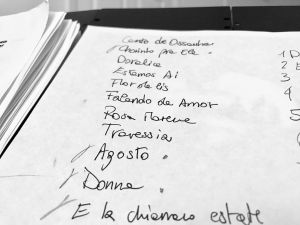 Canto de Ossanha
Chorinho pra Ele
Doralice
Estamos Aí
Flor de lis
Falando de Amor
Rosa Morena
Travessia
Agosto
Donna
E la chiamano estate
1 D
2 E
3
4
S